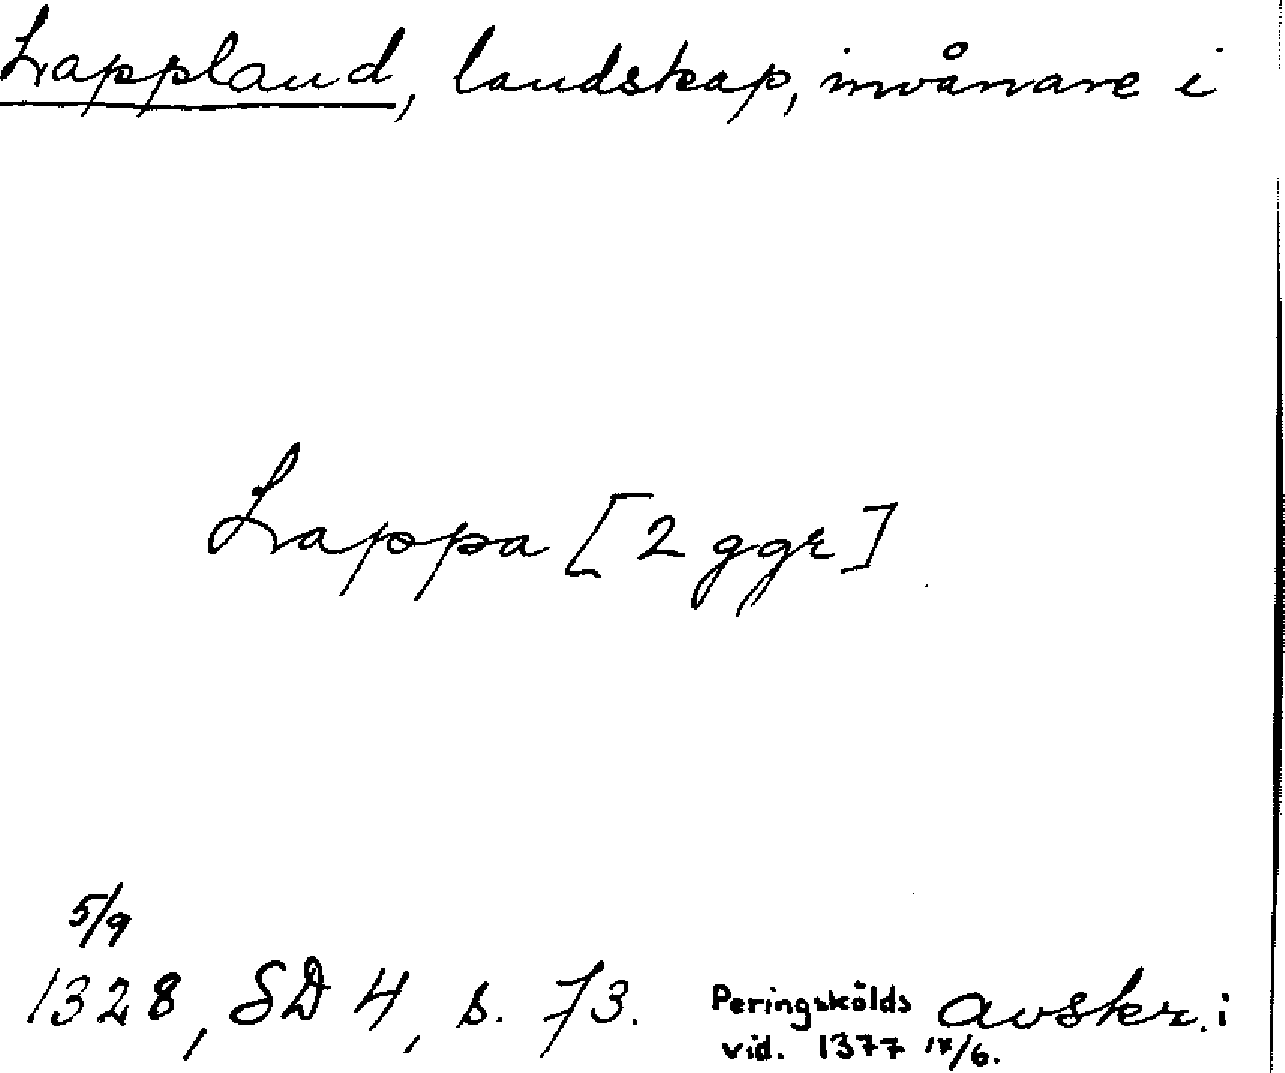 Lappland, landskap, invånare i
Lappa [2 ggr]
5/9
1328, SD 4, s. 73. Peringskölds avskr. i
vid. 1377 /6.